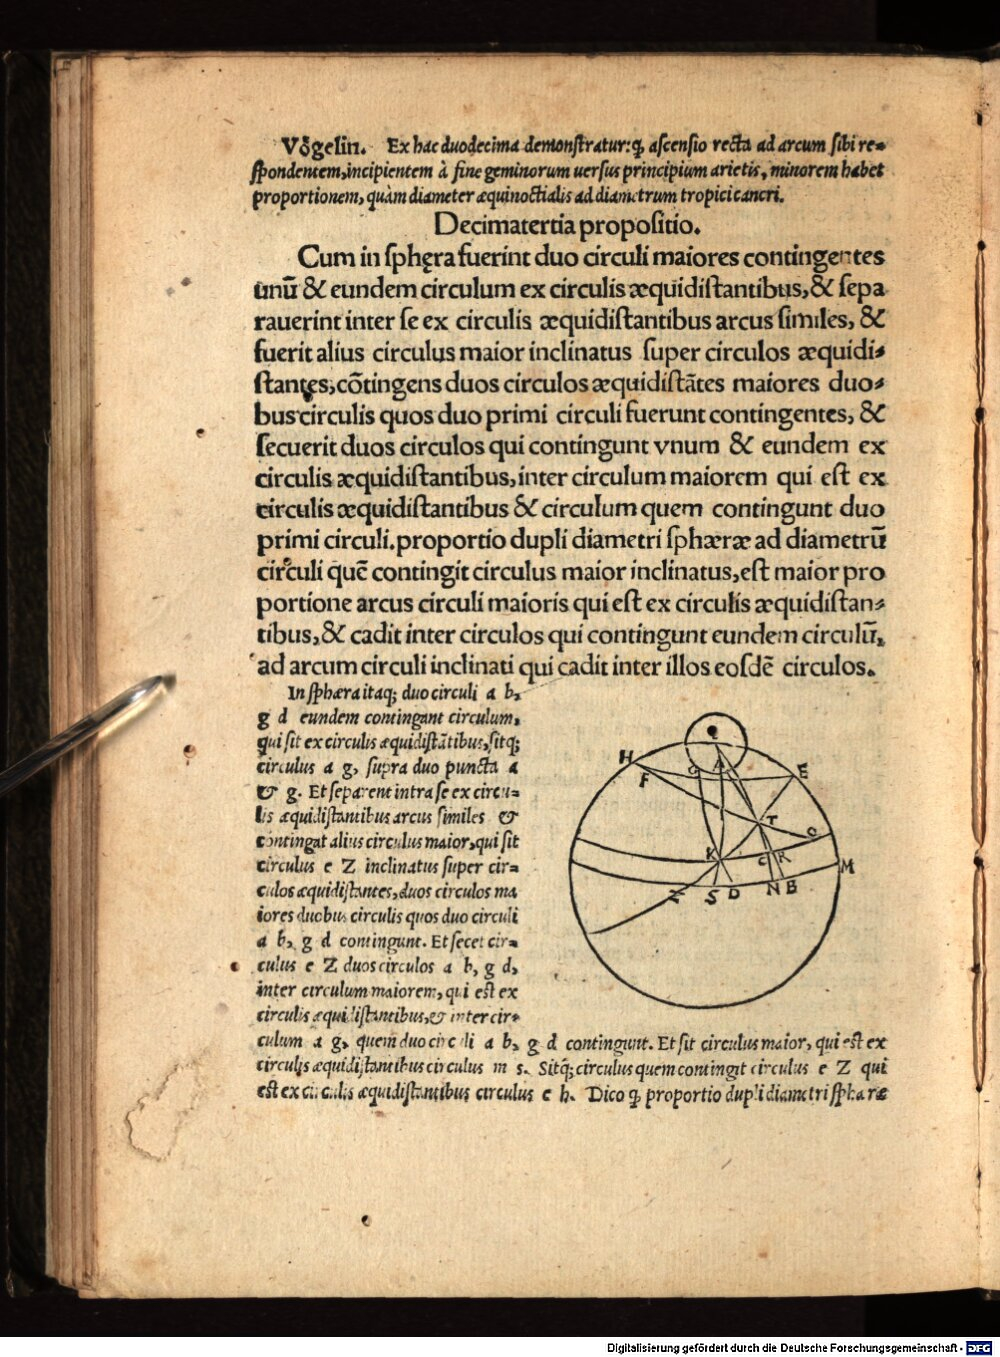 Vôgelin. Ex hac duodecima demonstratur: ꝙ ascensio recta ad arcum sibi re⸗
spondentem, incipientem à fine geminorum uersus principium arietis, minorem habet
proportionem, quàm diameter æquinoctialis ad diametrum tropici cancri.
Decimatertia propositio.
Cum in sphęra fuerint duo circuli maiores contingentes
unū & eundem circulum ex circulis æquidistantibus, & sepa
rauerint inter se ex circulis æquidistantibus arcus similes, &
fuerit alius circulus maior inclinatus super circulos æquidi⸗
stantes, cōtingens duos circulos æquidistātes maiores duo⸗
bus circulis quos duo primi circuli fuerunt contingentes, &
secuerit duos circulos qui contingunt vnum & eundem ex
circulis æquidistantibus, inter circulum maiorem qui est ex
circulis æquidistantibus & circulum quem contingunt duo
primi circuli. proportio dupli diametri sphæræ ad diametrū
circuli quē contingit circulus maior inclinatus, est maior pro
portione arcus circuli maioris qui est ex circulis æquidistan⸗
tibus, & cadit inter circulos qui contingunt eundem circulū,
ad arcum circuli inclinati qui cadit inter illos eosdē circulos.
In sphæra itaq; duo circuli a b,
g d eundem contingant circulum,
qui sit ex circulis æquidistātibus, sitq;
circulus a g, supra duo puncta a
& g. Et separent intra se ex circu⸗
lis æquidistantibus arcus similes &
contingat alius circulus maior, qui sit
circulus e Z inclinatus super cir⸗
culos æquidistantes, duos circulos ma
iores duobus circulis quos duo circuli
a b, g d contingunt. Et secet cir⸗
culus e Z duos circulos a b, g d,
inter circulum maiorem, qui est ex
circulis æquidistantibus, & inter cir⸗
culum a g, quem duo circuli a b, g d contingunt. Et sit circulus maior, qui est ex
circulis æquidistantibus circulus m s. Sitq; circulus quem contingit circulus e Z qui
est ex circulis æquidistantibus circulus e h. Dico ꝙ proportio dupli diametri sphæræ
H
F
G
A
E
T
O
K
C
R
M
Z
S
D
N
B
Digitalisierung gefördert durch die Deutsche Forschungsgemeinschaft - DFG